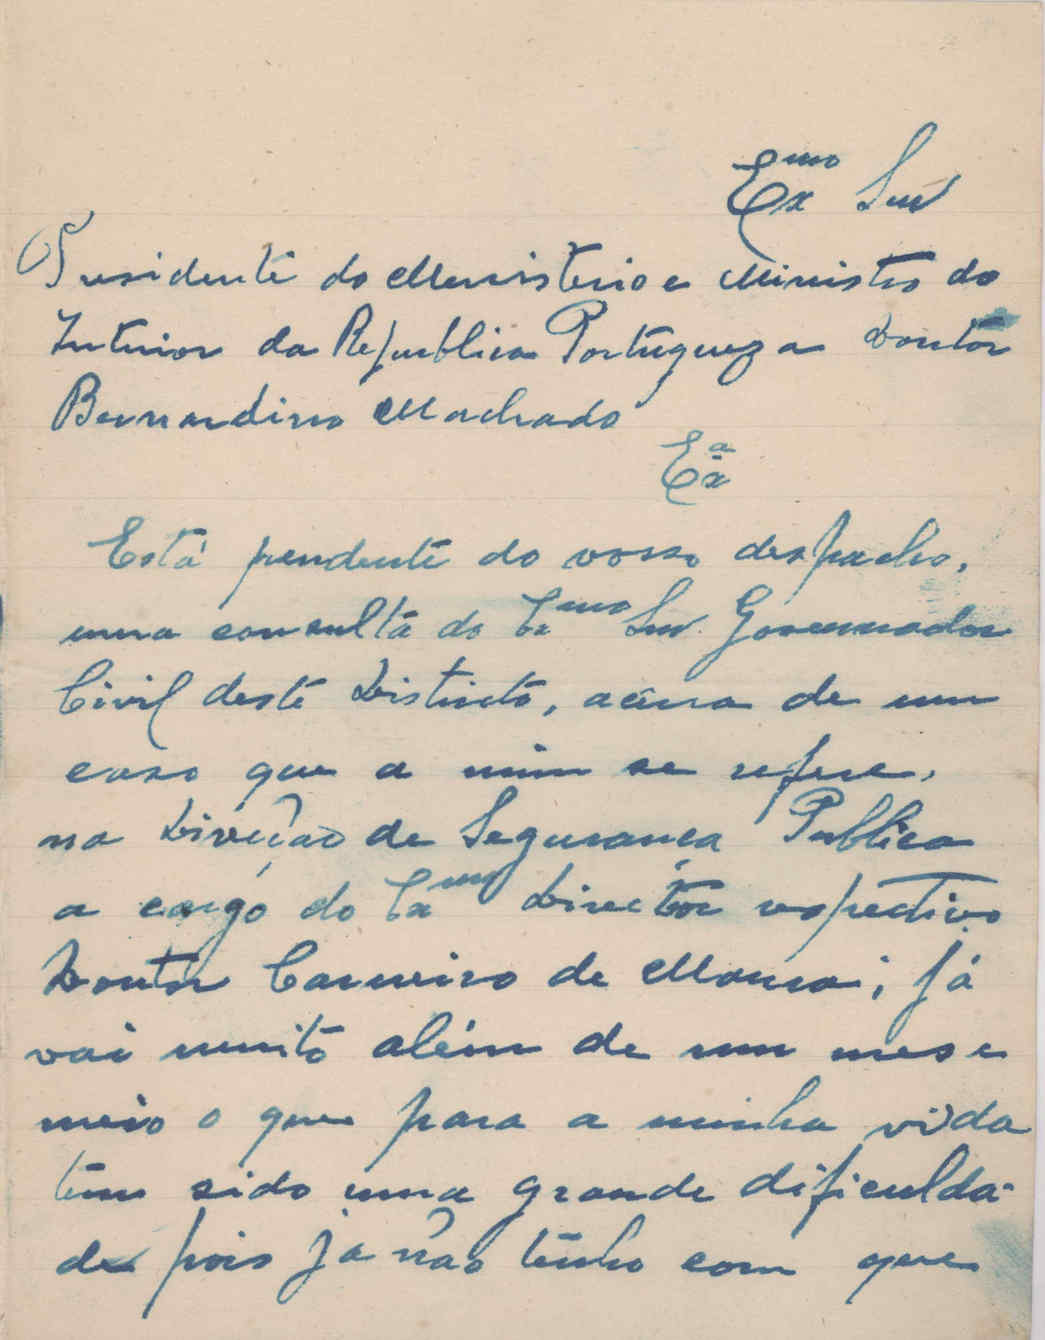 Exmo Snr
Presidente do Menisterio e Ministro do
Interior da Republica Portugueza Doutor
Bernardino Machado
Exa
Está pendente do vosso despacho,
uma consulta do Exmo Snr. Governador
Civil deste Districto, acêrca de um
caso que a mim se refere,
na Direição de Segurança Publica
a cargo do Exmo Director respectivo
Doutor Carneiro de Moura; já
vai muito além de um mes e
meio o que para a minha vida
tem sido uma grande dificulda-
de pois já não tenho com que